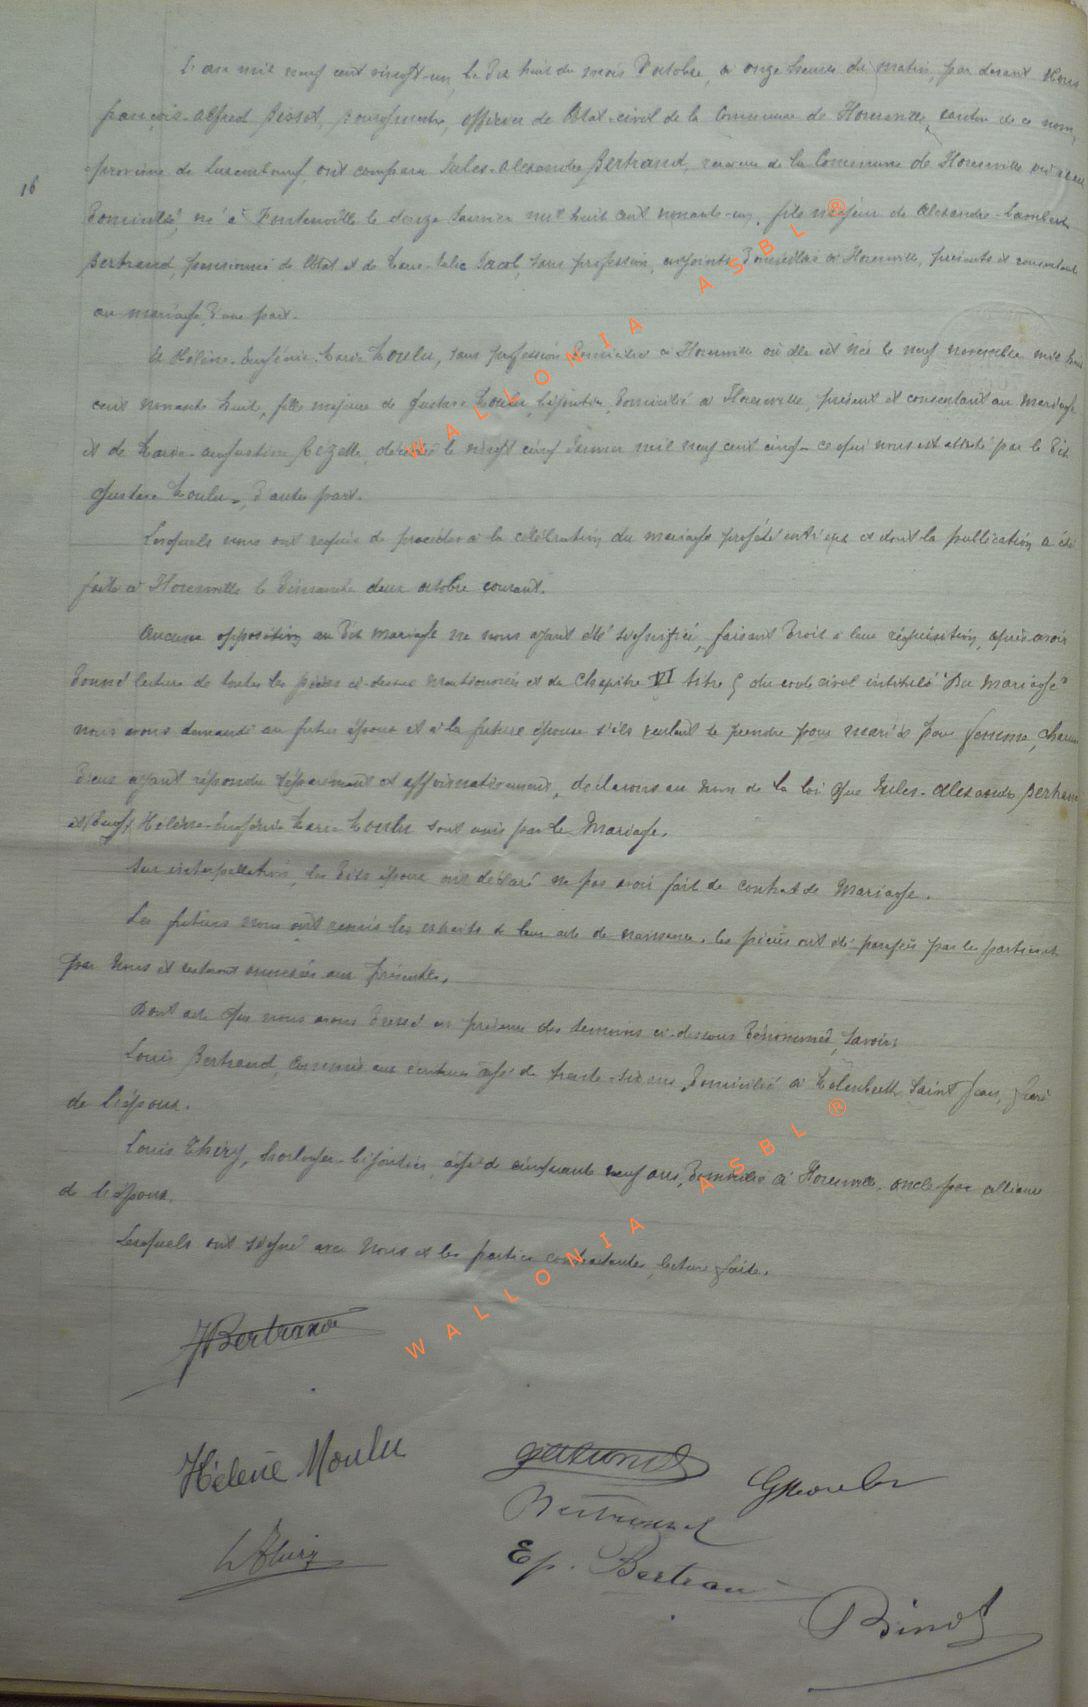 L'an mil neuf cent vingt-un, le dix huit du mois d'octobre, à onze heures du matin, par devant Nous
François-Alfred Binot, bourgmestre, officier de l'Etat-civil de la Commune de Florenville, canton de ce nom,
16
province de Luxembourg, ont comparu Jules-Alexandre Bertrand, receveur de la Commune de Florenville où il est
domicilié, né à Fontenoille le douze Janvier mil huit cent nonante-un, fils majeur de Alexandre-Lambert
Bertrand, pensionné de l'Etat et de Marie-Julie Jacob, sans profession, conjoints domiciliés à Florenville, présents et consentants
au mariage, d'une part.
Et Hélène-Eugénie-Marie Moulu, sans profession domiciliée à Florenville où elle est née le neuf novembre mil huit
cent nonante huit, fille majeure de Gustave Moulu, bijoutier, domicilié à Florenville, présent et consentant au Mariage
et de Marie-Augustine Rézette, décédée le vingt cinq Janvier mil neuf cent cinq - ce qui nous est attesté par le dit
Gustave Moulu -, d'autre part.
Lesquels nous ont requis de procéder à la célébration du mariage projeté entr'eux et dont la publication a été
faite à Florenville le dimanche deux octobre courant.
Aucune opposition au dit Mariage ne nous ayant été signifiée, faisant droit à leur réquisition, après avoir
donné lecture de toutes les pièces ci-dessus mentionnées et du Chapitre VI titre 5 du code civil intitulé "Du Mariage"
nous avons demandé au futur époux et à la future épouse s'ils veulent se prendre pour mari & pour femme, chacun
d'eux ayant répondu séparément et affirmativement, déclarons au nom de la loi que Jules-Alexandre Bertrand
et Hélène-Eugénie Marie Moulu sont unis par le Mariage.
Sur interpellation, les dits époux ont déclaré ne pas avoir fait de contrat de Mariage.
Les futurs nous ont remis les extraits de leur acte de naissance. les pièces ont été paraphées par les parties et
par Nous et resteront annexées aux présentes.
Dont acte que nous avons dressé en présence des témoins ci-dessous dénommés, Savoir:
Louis Bertrand, commis aux écritures âgé de trente-six ans, domicilié à Molenbeek Saint Jean, frère
de l'époux.
Louis Thiry, horloger-bijoutier, âgé de cinquante neuf ans, domicilié à Florenville, oncle par alliance
de l'épouse.
Lesquels ont signé avec Nous et les parties contractantes, lecture faite.
JBertrand
Hélène Moulu
GMoulu
Bertrand
LThiry
Ep. Bertrand
Binot
WALLONIA ASBL ®
WALLONIA ASBL ®